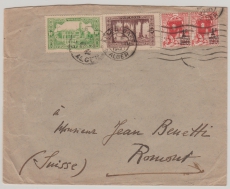 ALGER
à
Monsieur Jean Benetti
Romont
(Suisse)